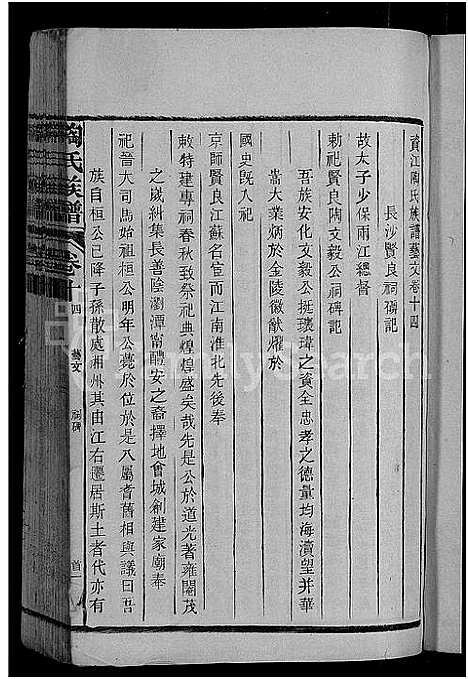 資江陶氏族譜藝文卷十四
長沙賢良祠碑記
故太子少保兩江總督
勅祀賢良陶文毅公祠碑記
吾族安化文毅公挺瓌瑋之資全忠孝之德量均海瀆望並華
嵩大業炳於金陵徽猷燿於
國史旣入祀
京師賢良江蘇名宦而江南淮北先後奉
敕特建專祠春秋致祭祀典煌煌盛矣哉先是公於道光著雍閹茂
之歲糾集長善陰瀏潭甯醴安之裔擇地會城創建家廟奉
祀晉大司馬始祖桓公明年公薨於位於是八屬耆舊相與議曰吾
族自桓公已降子孫散處湘州其由江右遷居斯土者代亦有
陶氏族譜 卷十四 藝文 祠碑 首一